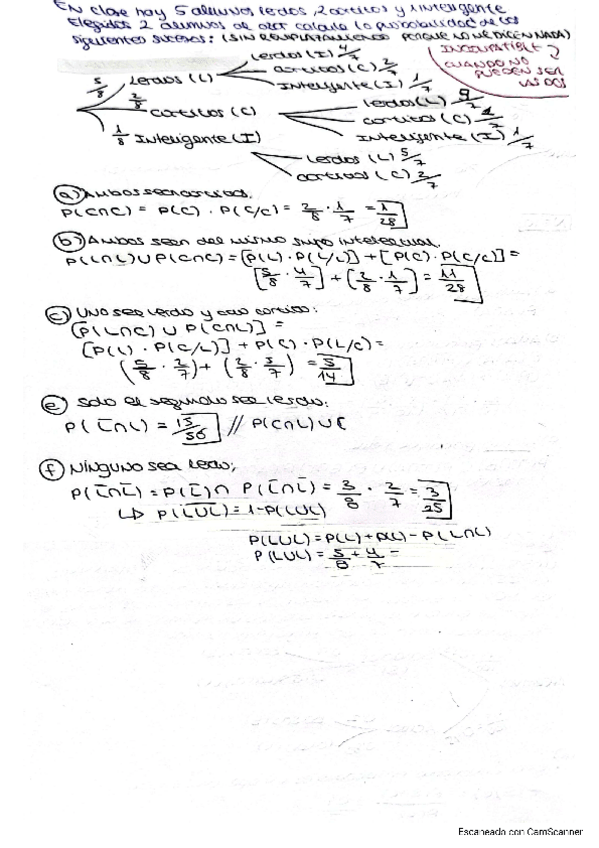 En clase hay 5 alumnos lerdos, 2 cortitos y 1 inteligente
Elegidos 2 alumnos al azar calcula la probabilidad de los
siguientes sucesos: (SIN REEMPLAZAMIENTO PORQUE NO ME DICEN NADA)
INCOMPATIBLE
CUANDO NO
PUEDEN SER
LAS DOS
Lerdos (L) 4/7
5/8 Lerdos (L) cortitos (C) 2/7
Inteligente (I) 1/7
2/8 cortitos (C) lerdo (L) /7
cortitos (C) 1/7
1/8 Inteligente (I) Inteligente (I) 1/7
Lerdos (L) 5/7
cortitos (C) 2/7
a) Ambos sean cortitos.
P(C∩C) = P(C) · P(C/C) = 2/8 · 1/7 = 1/28
b) Ambos sean del mismo grupo intelectual.
P(L∩L) ∪ P(C∩C) = [P(L) · P(L/L)] + [P(C) · P(C/C)] =
[5/8 · 4/7] + (2/8 · 1/7) = 11/28
c) Uno sea lerdo y otro cortito:
[P(L∩C) ∪ P(C∩L)] =
[P(L) · P(C/L)] + P(C) · P(L/C) =
(5/8 · 2/7) + (2/8 · 5/7) = 5/14
e) Solo el segundo sea lerdo:
P(L̅∩L) = 15/56 // P(C∩L) ∪
f) Ninguno sea lerdo;
P(L̅∩L̅) = P(L̅) ∩ P(L̅∩L̅) = 3/8 · 2/7 = 3/25
↳ P(L∪L) = 1-P(L∪L)
P(L∪L) = P(L) + P(L) - P(L∩L)
P(L∪L) = 5/8 + 4/7 =
Escaneado con CamScanner